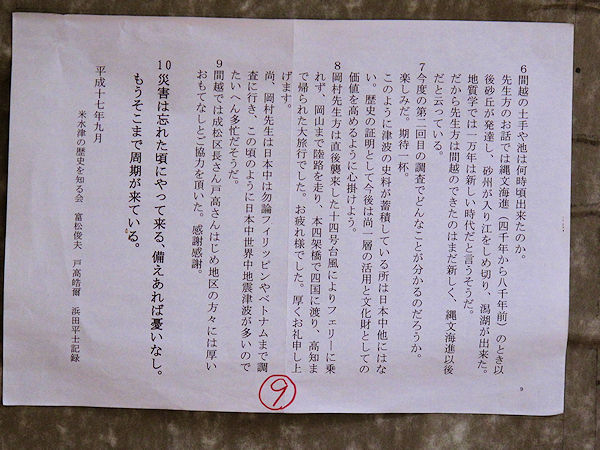 6間越の土手や池は何時頃出来たのか。
先生方のお話では縄文海進（四千年から八千年前）のとき以
後砂丘が発達し、砂州が入り江をしめ切り、潟湖が出来た。
地質学では一万年は新しい時代だと言うそうだ。
だから先生方は間越のできたのはまだ新しく、縄文海進以後
だと云っている。
7今度の第二回目の調査でどんなことが分かるのだろうか。
楽しみだ。期待一杯。
このように津波の史料が蓄積している所は日本中他にはな
い。歴史の証明として今後は尚一層の活用と文化財としての
価値を高めるように心掛けよう。
8岡村先生方は直後襲来した十四号台風によりフェリーに乗
れず、岡山まで陸路を走り、本四架橋で四国に渡り、高知ま
で帰られた大旅行でした。お疲れ様でした。厚くお礼申し上
げます。
尚、岡村先生は日本中は勿論フィリッピンやベトナムまで調
査に行き、この頃のように日本中世界中地震津波が多いので
たいへん多忙だそうだ。
9間越では成松区長さん戸高さんはじめ地区の方々には厚い
おもてなしとご協力を頂いた。感謝感謝。
10災害は忘れた頃にやって来る、備えあれば憂いなし。
もうそこまで周期が来ている。
平成十七年九月
米水津の歴史を知る会 富松俊夫 戸高皓爾 浜田平士記録
9
⑨